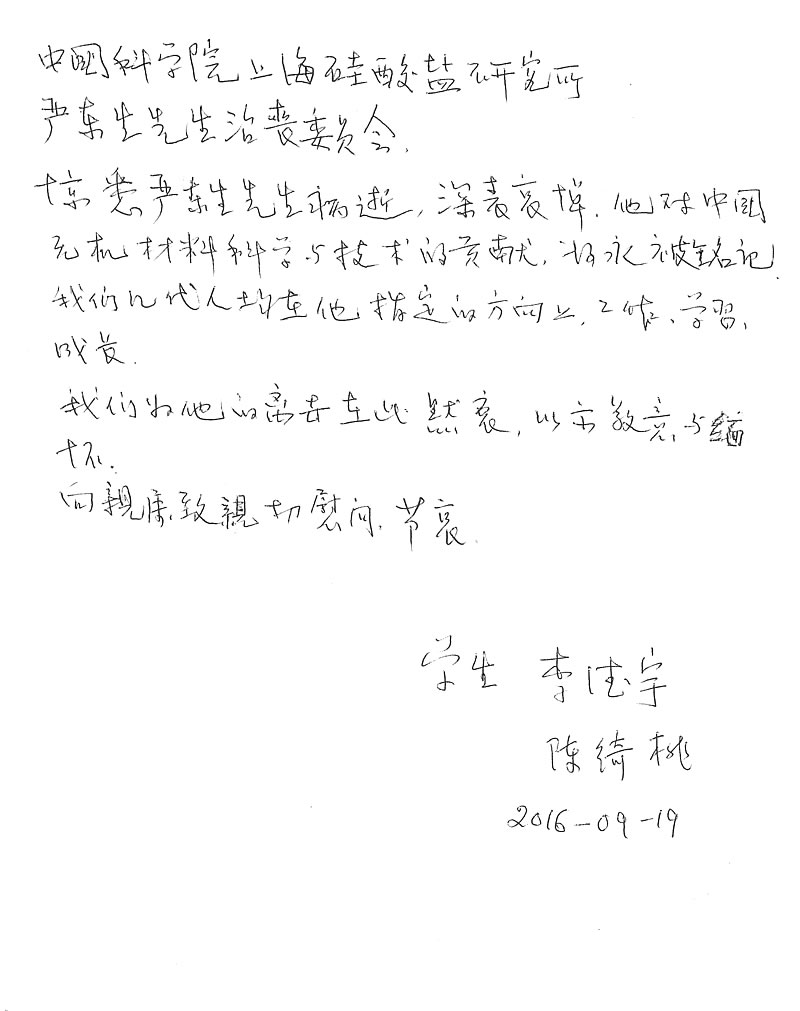 中国科学院上海硅酸盐研究所
严东生先生治丧委员会.
惊悉严东生先生病逝,深表哀悼.他对中国
无机材料科学与技术的贡献,将永被铭记.
我们几代人均在他指定的方向上,工作、学习、
成长.
我们为他的离去在此默哀,以示敬意与缅
怀.
向親属致親切慰问.节哀.
学生 李德宇
陈绮桃
2016-09-19